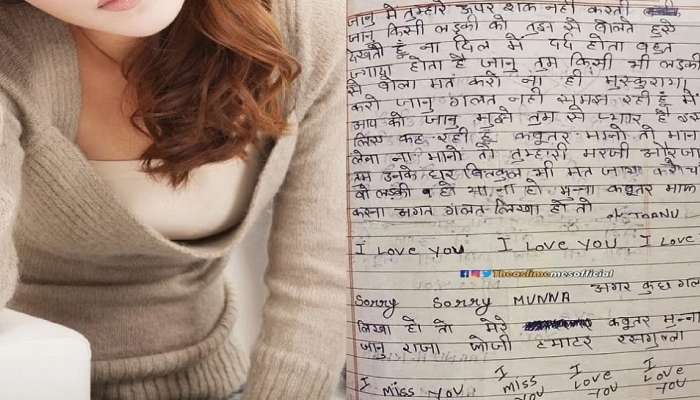 जानु मैं तुम्हारे ऊपर शक नही करती
जानु किसी लड़की को तुम से बोलते हुसे
देखती हूँ ना दिल में दर्द होता बहुत
ज्यादा होता है जानु तुम किसी भी लड़की
से बोला मत करो ना ही मुस्कुराया
करो जानु गलत नही समझ रही हूँ मैं
आप को जानु मुझे तुम से प्यार है इस
लिस कह रही हूँ कबूतर मानो तो मान
लेना ना मानो तो तुम्हारी मरजी और जा
तुम उनके घर बिलकुल भी मत जाया करो च
वो लड़की हो या ना हो मुन्ना कबूतर माफ
करना अगत गलत लिखा हो तो
I LOVE YOU I LOVE YOU I LOVE
Theoslimemesofficial
Sorry Sorry MUNNA अगर कुछ गल
लिखा हो तो मेरे कबूतर मुन्ना
जानु राजा जोजी टमाटर रसगुल्ला
I MISS YOU I MISS YOU I LOVE YOU I LOVE YOU